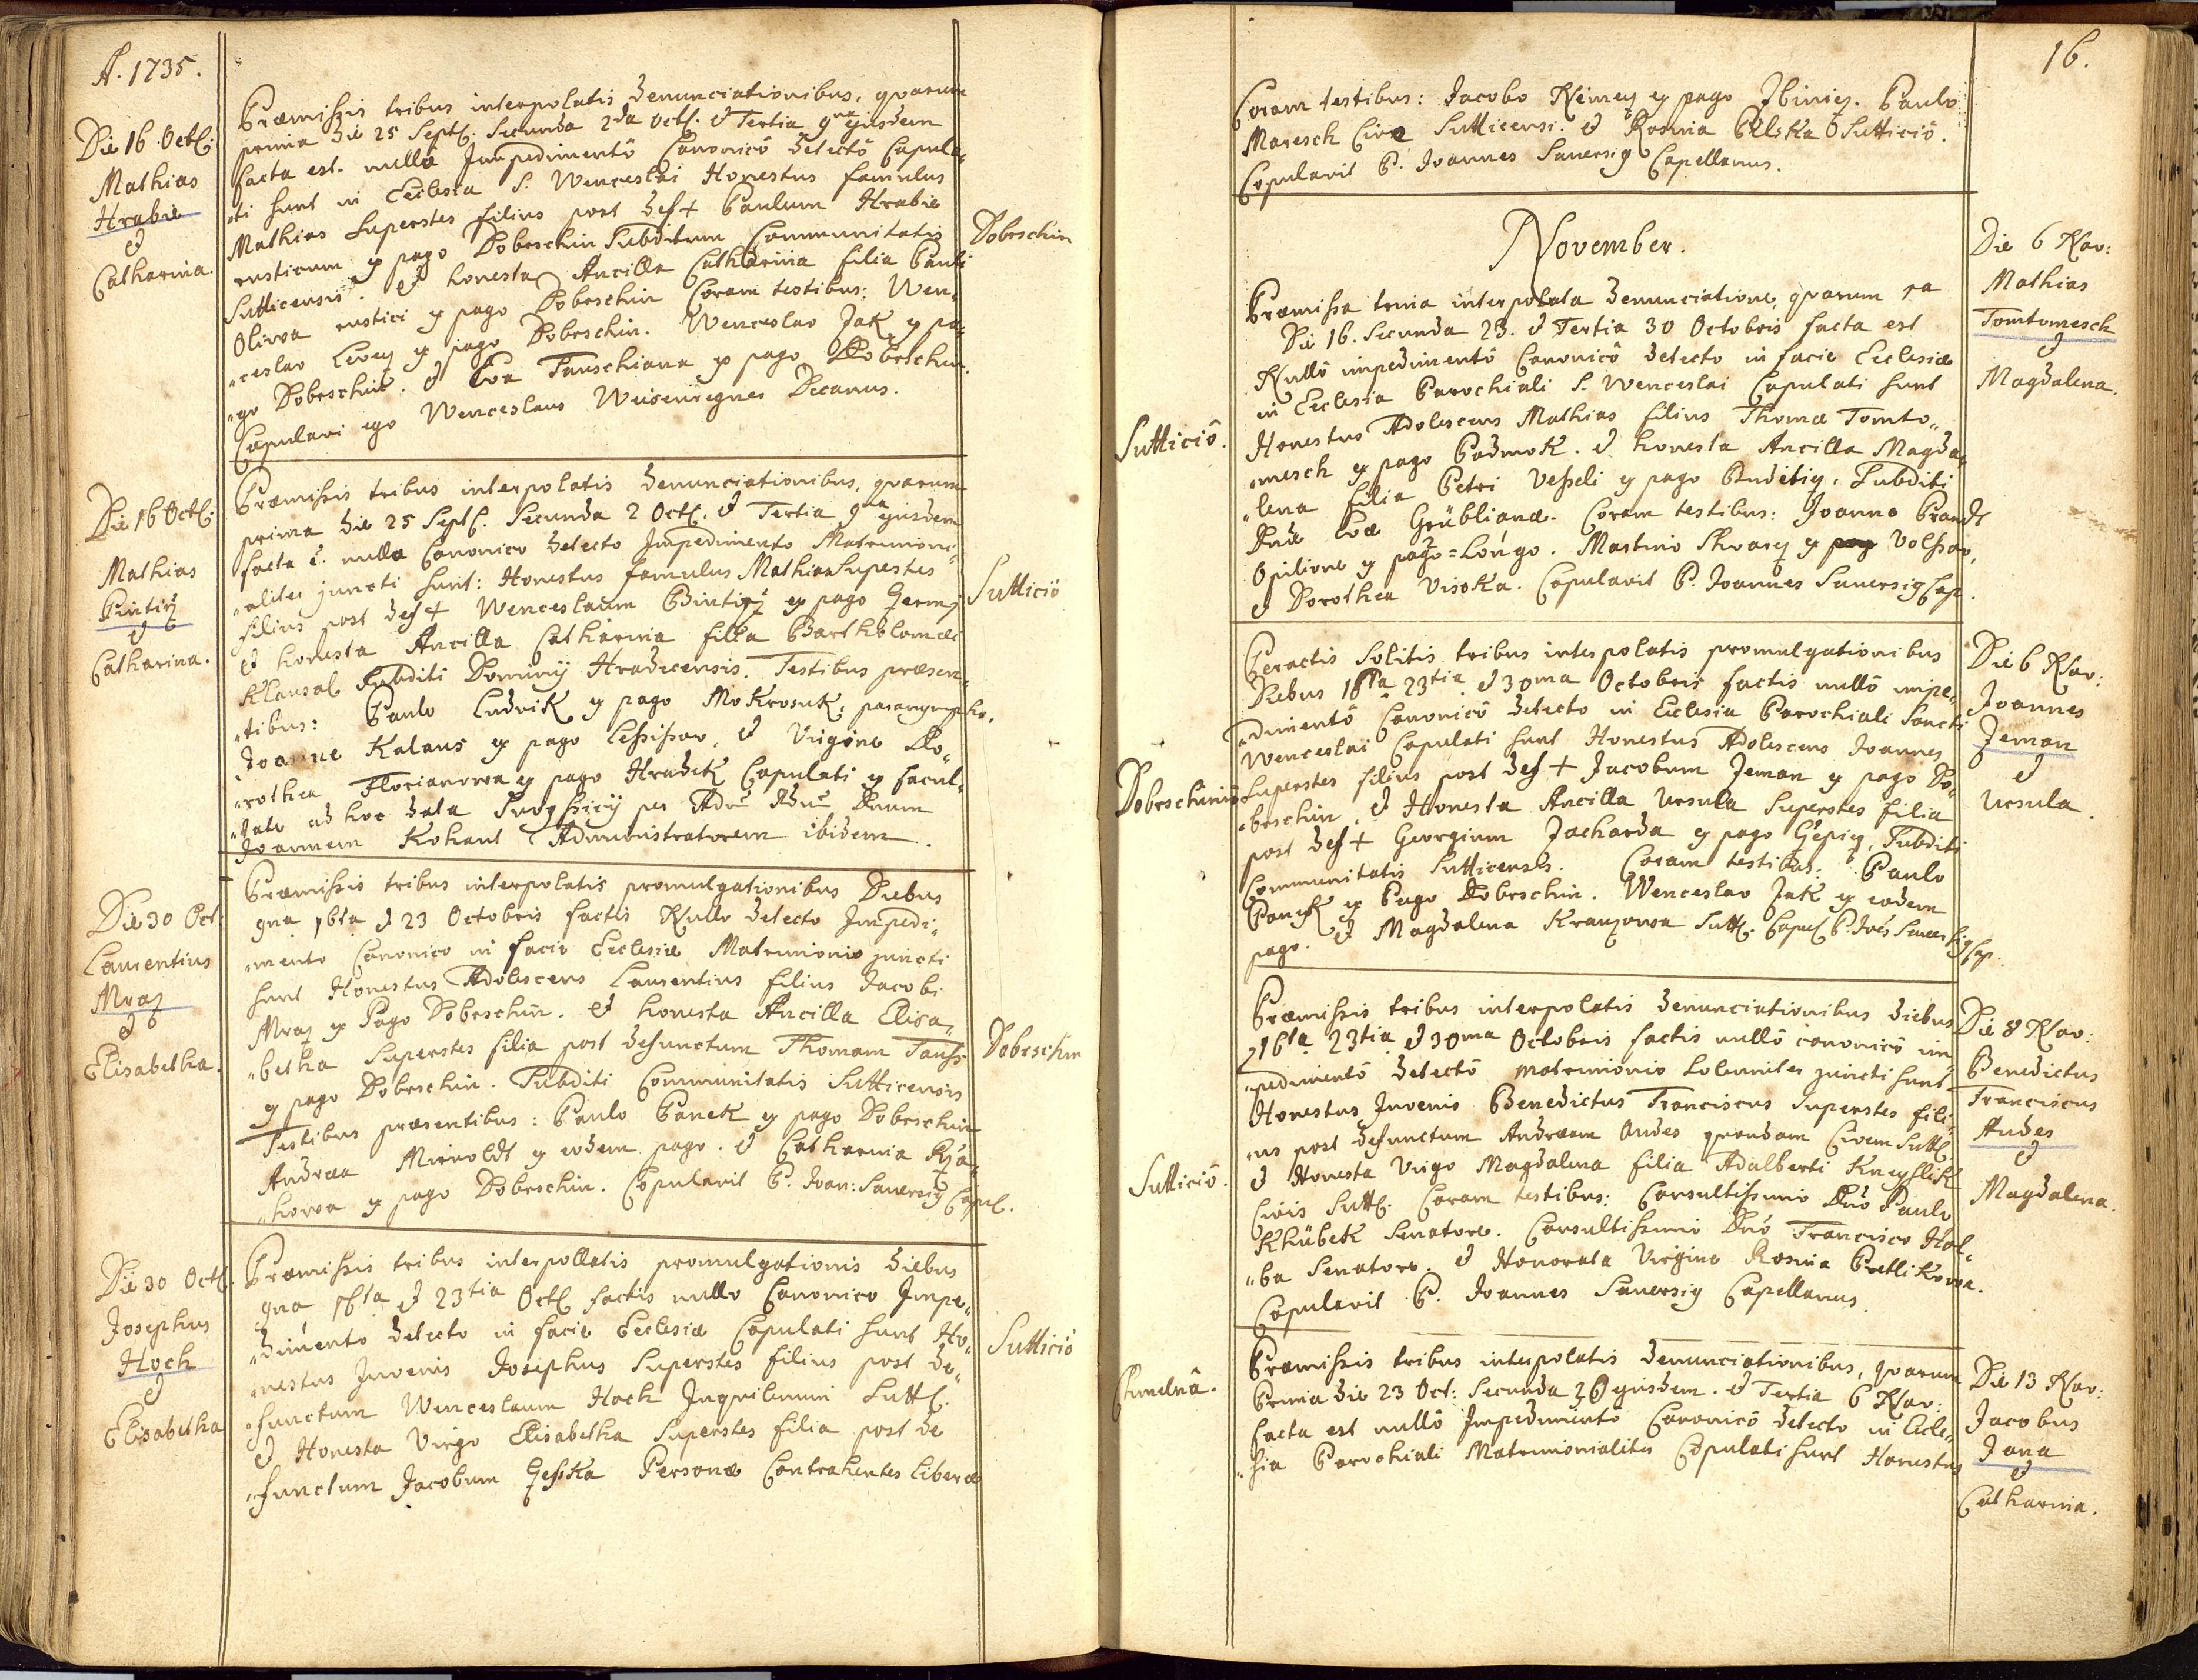 A. 1735.
Die 16 Octb:
Mathias
Hrabie
et
Catharina.
Præmissis tribus interpolatis denunciationibus, qvarum
prima die 25 Septb. Secunda 2da Octb. et Tertia 9na ejusdem
facta est. nullô Impedimentô Canonicô detectô Copula„
„ti sunt in Ecclesia S. Wenceslai Honestus famulus
Mathias Superstes filius post def+ Paulum Hrabie
rusticum ex pago Dobrschin Subditum Communitatis
Sutticensis. et honesta Ancilla Catharina filia Pauli
Oliwa rustici ex pago Dobrschin Coram testibus: Wen„
„ceslao ex pago Dobrschin. Wenceslao Jak ex pa„
„go Dobrschin. et Eva Tauschiana ex pago Dobrschin.
Copulavi ego Wenceslaus Weisenregner Decanus.
Dobrschin
Die 16 Octb:
Mathias
et
Catharina.
Præmissis tribus interpolatis denunciationibus, qvarum
prima die 25 Septb. Secunda 2 Octb. et Tertia 9na ejusdem
facta ē. nullo Canonico detecto Impedimento Matrimoni„
„aliter juncti sunt: Honestus famulus Mathias Superstes
filius post def+ Wenceslaum ex pago
et honesta Ancilla Catharina filia Bartholomæi
Klausal Subditi Dominij Hradecensis. Testibus præsen„
„tibus: Paulo Ludvik ex pago Mokrosuk, paranympho.
Joanne Kalaus ex pago et Virgine Do„
„rothea Florianowa ex pago Hradek Copulati ex facul„
„tate ad hoc data per Adm Rdum Dnum
Joannem Kohaut Administratorem ibidem.
Sutticiô
Die 30 Oct:
Laurentius
Mraz
et
Elisabetha.
Præmissis tribus interpolatis promulgationibus Diebus
9na 16ta et 23 Octobris factis Nullo detecto Impedi„
„mento Canonico in facie Ecclesiæ Matrimonio juncti
sunt Honestus Adolescens Laurentius filius Jacobi
Mraz ex Pago Dobrschin. et honesta Ancilla Elisa„
„betha Superstes filia post defunctum Thomam
ex pago Dobrschin. Subditi Communitatis Sutticensis
Testibus præsentibus: Paulo Panek ex pago Dobrschin
Andrea ex eodem pago. et Catharina
ex pago Dobrschin. Copulavit P. Joan: Sauersig Capel.
Dobrschin
Die 30 Octb.
Josephus
Hoch
et
Elisabetha
Præmissis tribus interpollatis promulgationis diebus
9na 16ta et 23tia Octb factis nullo Canonico Impe„
„dimento detecto in facie Ecclesiæ Copulati sunt Ho„
„nestus Juvenis Josephus Superstes filius post de„
„functum Wenceslaum Hoch Inquilinum Sutt.
et Honesta Virgo Elisabetha Superstes filia post de
„functum Jacobum Personæ Contrahentes liberæ
Suttició
16.
Coram testibus: Jacobo ex pago Paulo
Maresch Cive Sutticensi. et Rosina Suttició.
Copulavit P. Joannes Sauersig Capellanus.
November.
Suttició.
Præmissa trina interpolata denunciatione, qvarum 1a
Die 16. Secunda 23. et Tertia 30 Octobris facta est
Nullô impedimentô Canonicô detecto in facie Ecclesiæ
in Ecclesia Parochiali S. Wenceslai Copulati sunt
Honestus Adolescens Mathias filius Thomæ Tomto„
„mesch ex pago Podmok. et honesta Ancilla Magda„
„lena filia Petri ex pago Budetiz. Subditi
Dnæ Evæ Grüblianæ. Coram testibus: Joanne
Opilione ex pago=Longo. Martino ex
et Dorothea Visoka. Copulavit P. Joannes Sauersig Cap.
Die 6 Nov:
Mathias
Tomtomesch
et
Magdalena.
Dobrschinió
Peractis Solitis tribus interpolatis promulgationibus
Diebus 16ta 23tia et 30ma Octobris factis nullô impe„
„dimentô Canonicô detecto in Ecclesia Parochiali Sancti
Wenceslai Copulati sunt Honestus Adolescens Joannes
Superstes filius post def+ Jacobum Jeman ex pago Do„
„brschin, et Honesta Ancilla Ursula Superstes filia
post def+ Georgium ex pago Subditi
Communitatis Sutticensis. Coram testibus: Paulo
Panek ex Pago Dobrschin. Wenceslao Jak ex eodem
pago. et Magdalena Sutt. Copul P. Joēs Sauersig Cap.
Die 6 Nov:
Joannes
Jeman
et
Ursula.
Suttició.
Præmissis tribus interpolatis denunciationibus diebus
16ta 23tia et 30ma Octobris factis nullô canonicô im
„pedimentô detectô matrimonio Solemniter juncti sunt
Honestus Juvenis Benedictus Franciscus Superstes fili„
„us post defunctum Andream Andes quondam Civem Sutt.
et Honesta Virgo Magdalena filia Adalberti
Civis Sutt. Coram testibus: Consultissimo Dnō Paulo
Khübek Senatore. Consultissimo Dnō Francisco Hol„
„ba Senatore. et Honorata Virgine Rosina
Copulavit P. Joannes Sauersig Capellanus.
Die 8 Nov:
Benedictus
Franciscus
Andes
et
Magdalena.
Præmissis tribus interpolatis denunciationibus, qvarum
Prima die 23 Oct: Secunda 30 ejusdem. et Tertia 6 Nov:
facta est nullô Impedimento Canonicô detecto in Eccle„
„sia Parochiali Matrimonialiter Copulati sunt Honestus
Die 13 Nov:
Jacobus
Jana
et
Catharina.